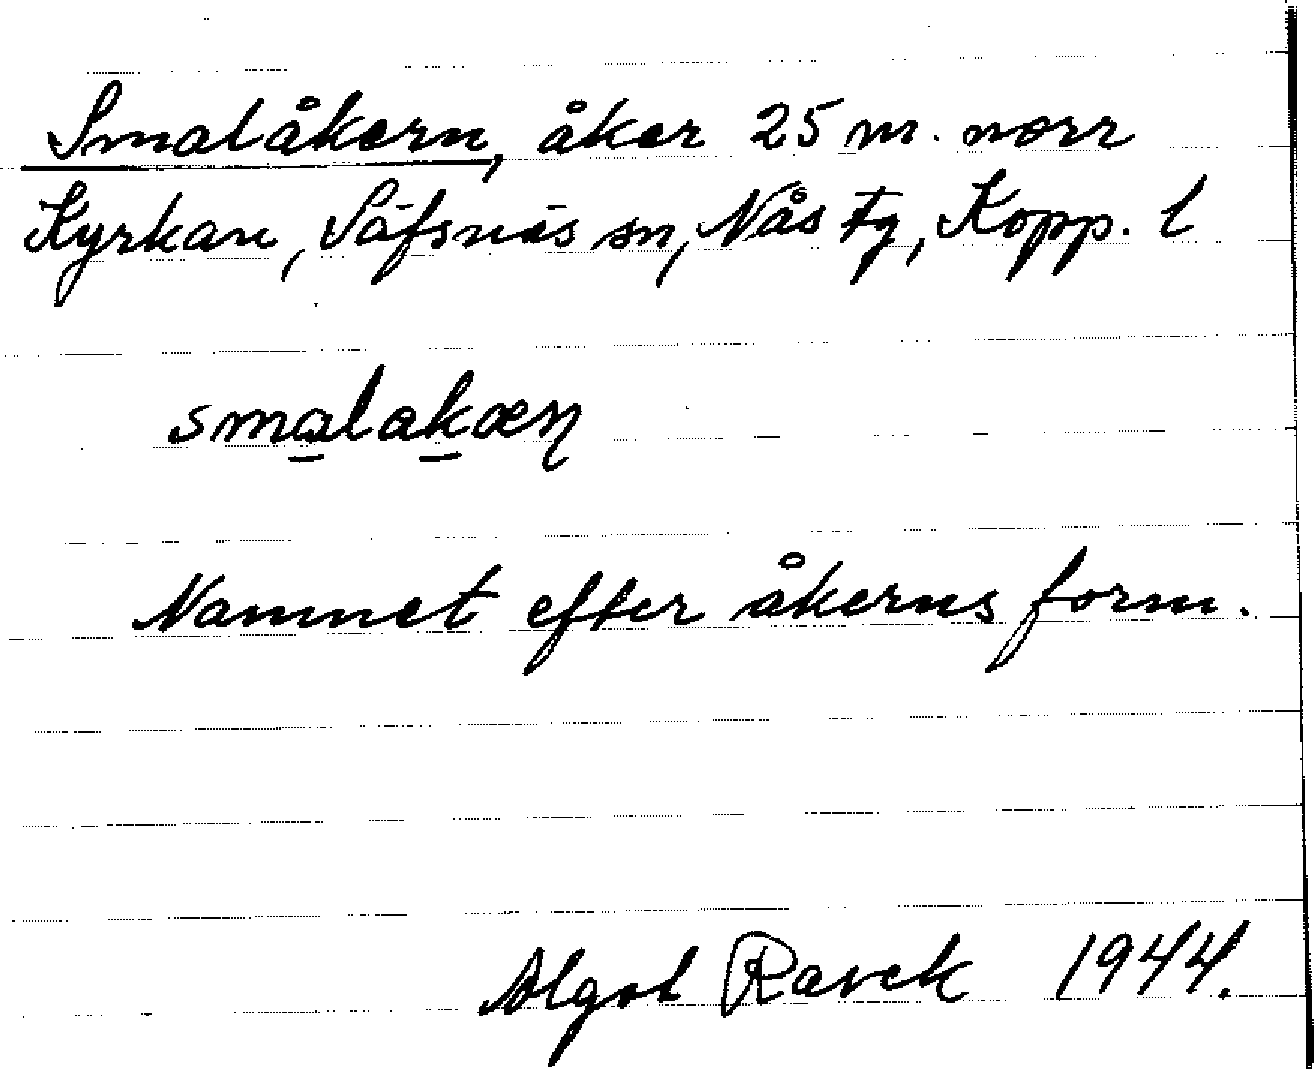 Smalåkern, åker 25 m. norr
Kyrkan, Säfsnäs sn, Nås Fg, Kopp. l
smalakæn
Namnet efter åkerns form.
Algot 1944.